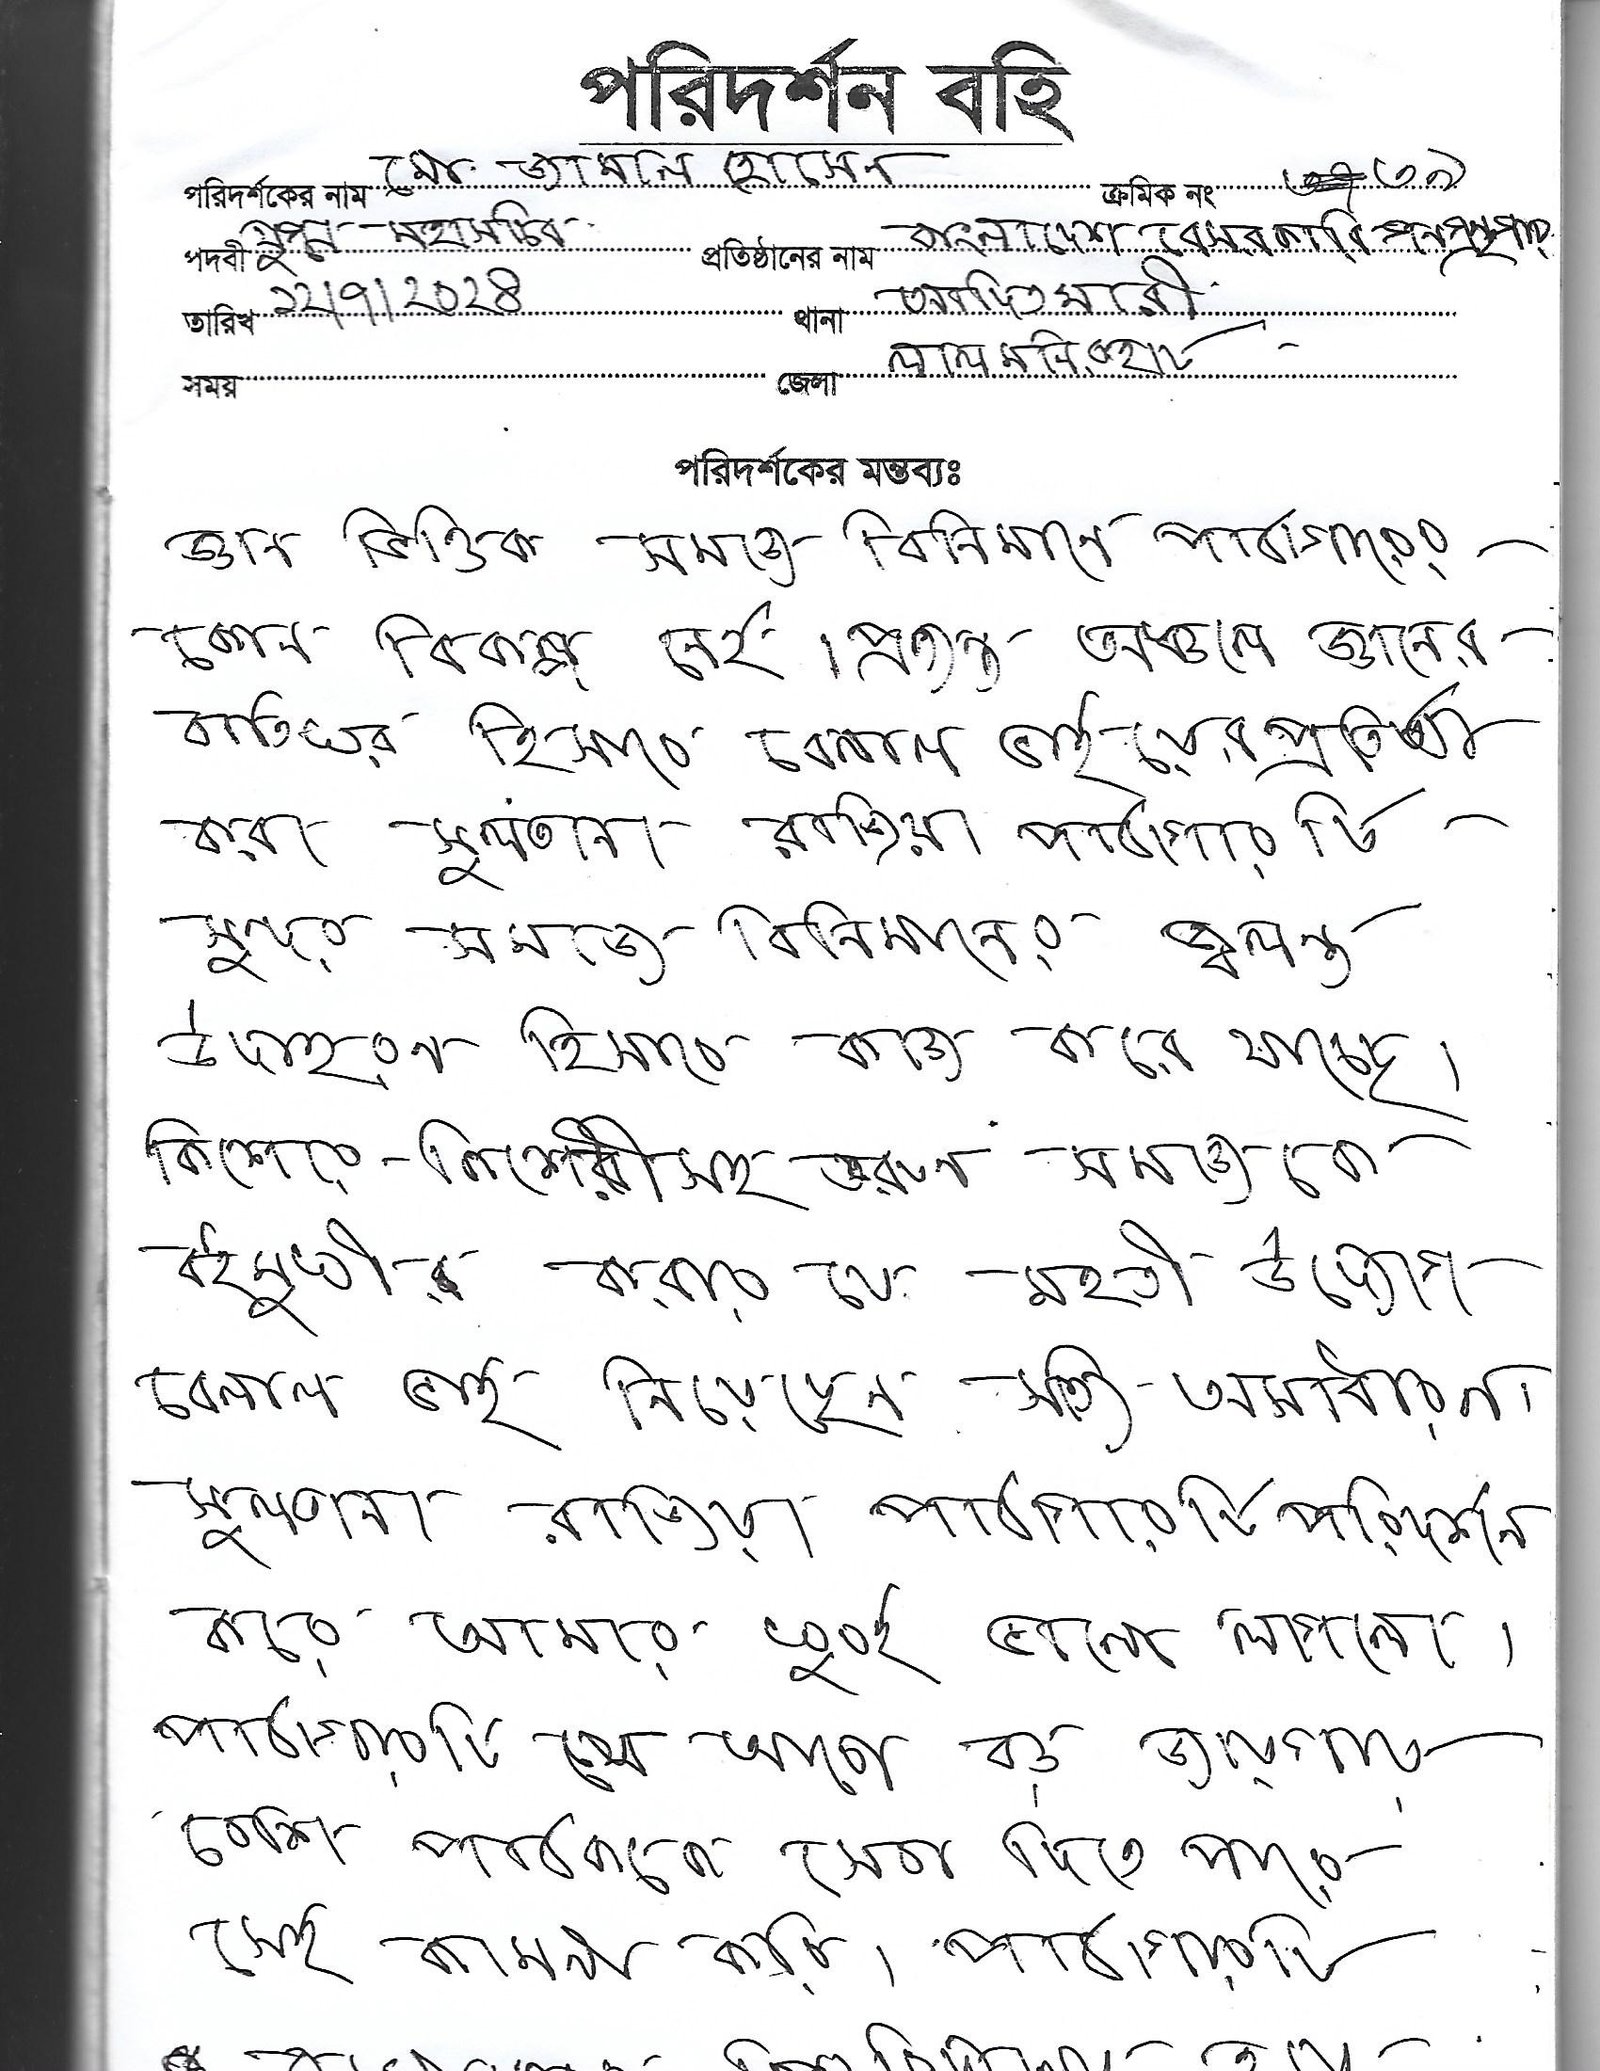 পরিদর্শন বহি
পরিদর্শকের নাম মোঃ জামাল হোসেন ক্রমিক নং ৩৯
পদবী যুগ্ম মহাসচিব প্রতিষ্ঠানের নাম বাংলাদেশ বেসরকারি গণগ্রন্থাগার
তারিখ ১২/৭/২০২৪ থানা আদিতমারী
সময় জেলা লালমনিরহাট
পরিদর্শকের মন্তব্যঃ
জ্ঞান ভিত্তিক সমাজ বিনির্মানে পাঠাগারের
কোন বিকল্প নেই। প্রত্যন্ত অঞ্চলে জ্ঞানের
বাতিঘর হিসাবে বেলাল ভাইয়ের প্রতিষ্ঠা
করা সুলতানা রাজিয়া পাঠাগারটি
সুন্দর সমাজ বিনির্মানের জ্বলন্ত
উদাহরন হিসাবে কাজ করে যাচ্ছে।
কিশোর-কিশোরীসহ তরুন সমাজকে
বইমুখী করার যে মহতী উদ্যোগ
বেলাল ভাই নিয়েছেন সত্যি অসাধারন।
সুলতানা রাজিয়া পাঠাগারটি পরিদর্শন
করে আমার খুবই ভালো লাগলো।
পাঠাগারটি যেন আরো বড় জায়গায়
বেশি পাঠককে সেবা দিতে পারে
সেই কামনা করি। পাঠাগারটি